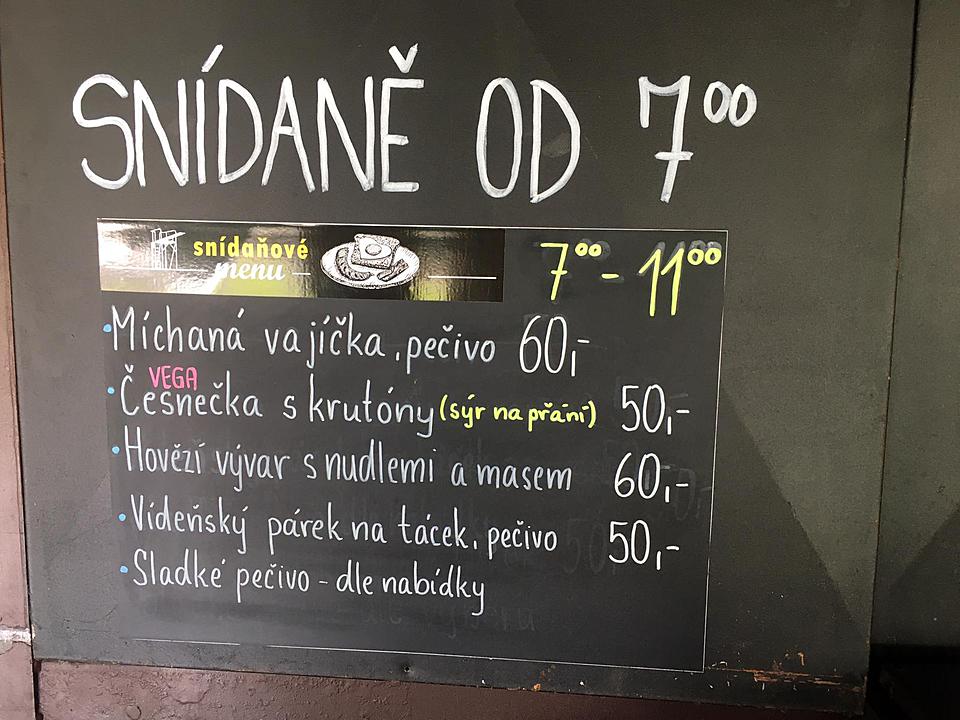 SNÍDANĚ OD 7⁰⁰
snídaňové
menu
7⁰⁰ - 11⁰⁰
• Míchaná vajíčka, pečivo 60,-
VEGA
• Česnečka s krutóny (sýr na přání) 50,-
• Hovězí vývar s nudlemi a masem 60,-
• Vídeňský párek na tácek, pečivo 50,-
• Sladké pečivo - dle nabídky